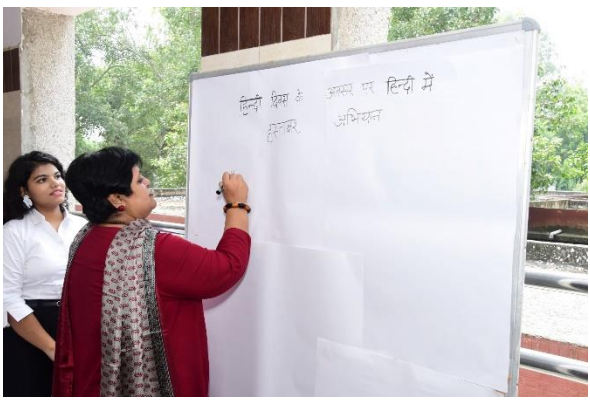 हिन्दी दिवस के अवसर पर हिन्दी में
हस्ताक्षर अभियान